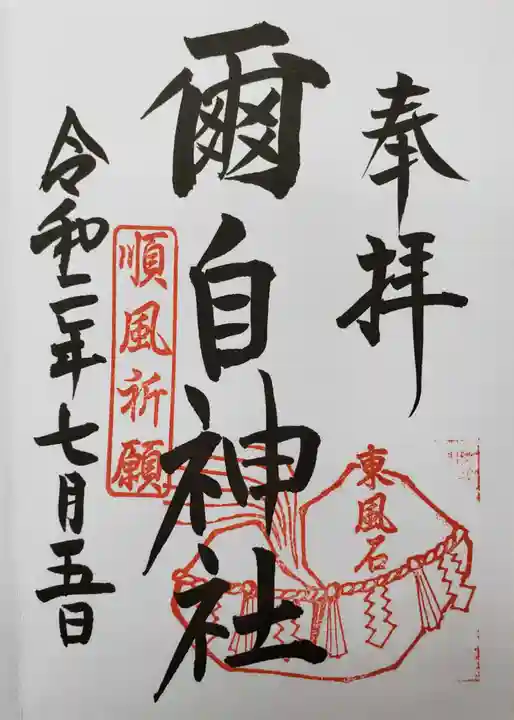 奉拝
東風石
爾自神社
順風祈願
令和二年七月五日